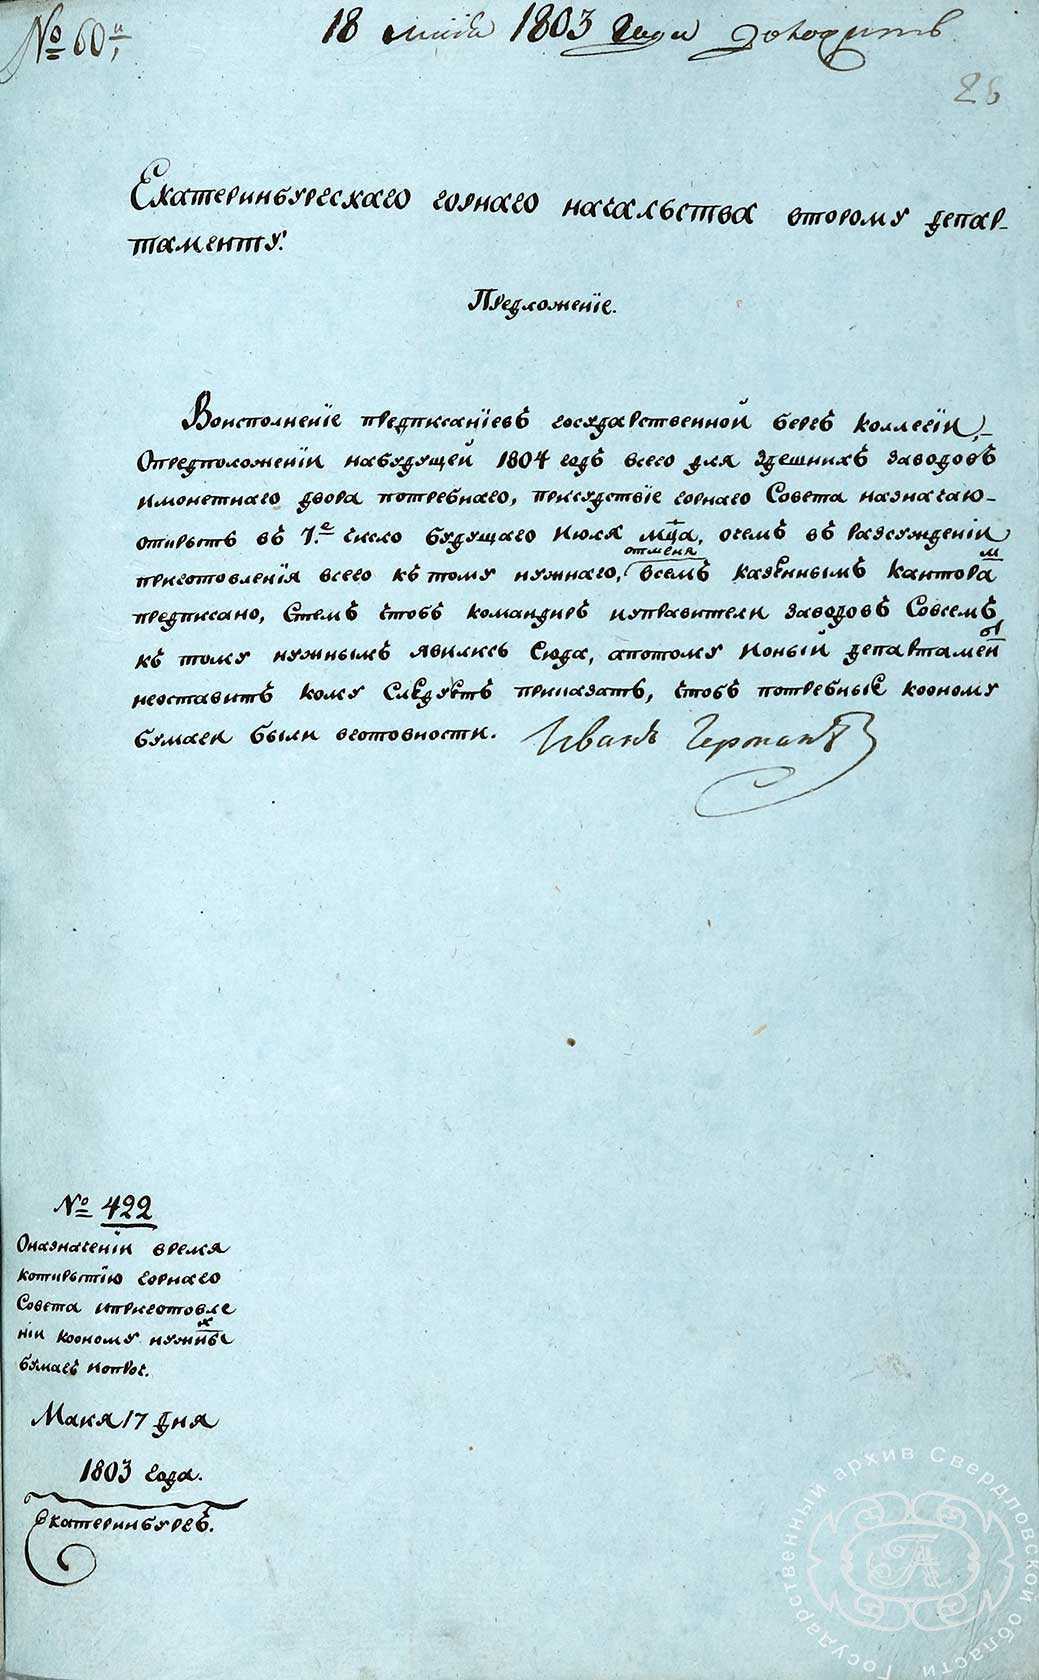 № 60й,
18 маия 1803 года
25
Екатеринбургскаго горнаго начальства второму депар-
таменту.
Предложенїе.
Воисполненїе предписанїевъ государственной бергъ коллегїи,
Опредположенїи набудущей 1804 годъ всего для здешнихъ заводовъ
имонетнаго двора потребнаго, присудствїе горнаго Совета назначаю
открыть въ 1.е число будущаго Июля мца, очемъ въ разсужденїи
отменя
приготовленїя всего къ тому нужнаго, всемъ казеннымъ кантора м
предписано, Стемъ чтобъ командиръ иуправители заводовъ Совсемъ
къ тому нужнымъ явились Сюда, апотому Ионый департамен тъ
неоставитъ кому Следуетъ приказать, чтобъ потребные коному
бумаги были вготовности. Иванъ Германъ
№ 422
Оназначенїи время
котирытїю горнаго
Совета иприготовле
нїи коному нужныхъ
бумагъ ипроч.
Маия 17 дня
1803 года.
Екатеринбургъ.
Государственный архив Свердловской области